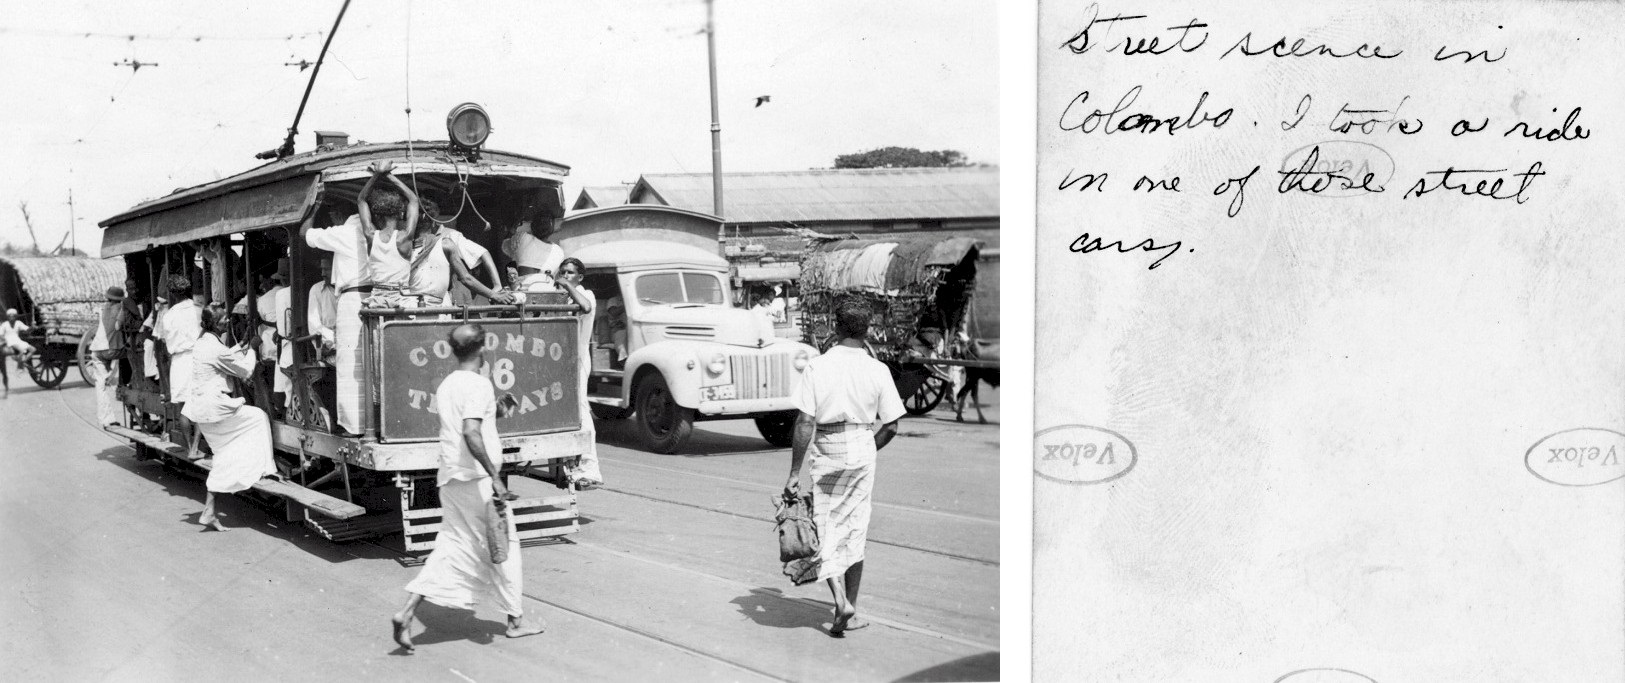 COLOMBO
6
TRAMWAYS
Street scence in
Colombo. I took a ride
in one of those street
cars.
Velox
Velox
Velox